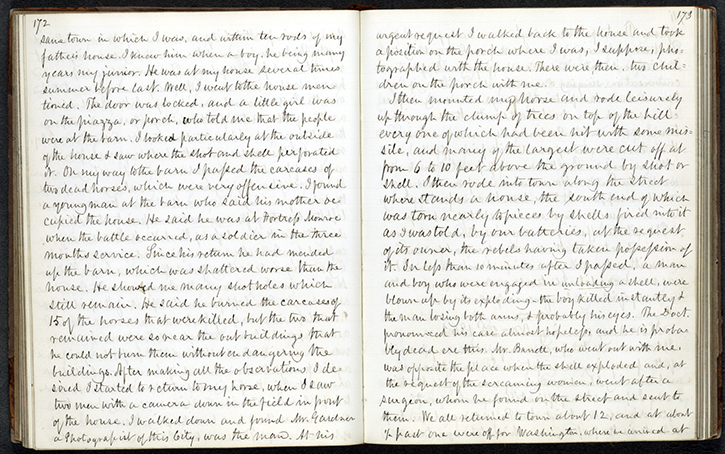 172
same town in which I was, and within ten rods of my
father's house. I knew him when a boy, he being many
years my junior. He was at my house several times
summer before last. Well, I went to the house men
tioned. The door was locked, and a little girl was
on the piazza, or porch, who told me that the people
were at the barn. I looked particularly at the outside
of the house & saw where the shot and shell perforated
it. On my way to the barn I passed the carcases of
two dead horses, which were very offensive. I found
a young man at the barn who said his mother oc-
cupied the house. He said he was at Fortress Monroe
when the battle occurred, as a soldier in the three
months service. Since his return he had mended
up the barn, which was shattered worse than the
house. He showed me many shot holes which
still remain. He said he burned the carcases of
15 of the horses that were killed, but the two that
remained were so near the out buildings that
he could not burn them without endangering the
buildings. After making all the observations I de-
sired I started to return to my horse, when I saw
two men with a camera down in the field in front
of the house. I walked down and found Mr. Gardner
a Photographist of this City, was the man. At his
173
urgent request I walked back to the house and took
a position on the porch where I was, I suppose, pho-
tographed with the house. There were, then, two chil-
dren on the porch with me.
I then mounted my horse and rode leisurely
up through the clump of trees on top of the hill
every one of which had been hit with some mis-
sile, and many of the largest were cut off at
from 6 to 10 feet above the ground by shot or
shell. I then rode into town along the street
where stands a house, the south end of which
was torn nearly to pieces by shells fired into it
as I was told, by our batteries, at the request
of its owner, the rebels having taken possession of
it. In less than 10 minutes after I passed, a man
and boy who were engaged in unloading a shell, were
blown up by its exploding – the boy killed instantly &
the man losing both arms, & probably his eyes. The Doct.
pronounced his case almost hopeless, and he is proba
bly dead ere this. Mr. who went out with me,
was opposite the place when the shell exploded and, at
the request of the screaming women, went after a
surgeon, whom he found on the street and sent to
them. We all returned to town about 12, and at about
½ past one were off for Washington, where we arrived at